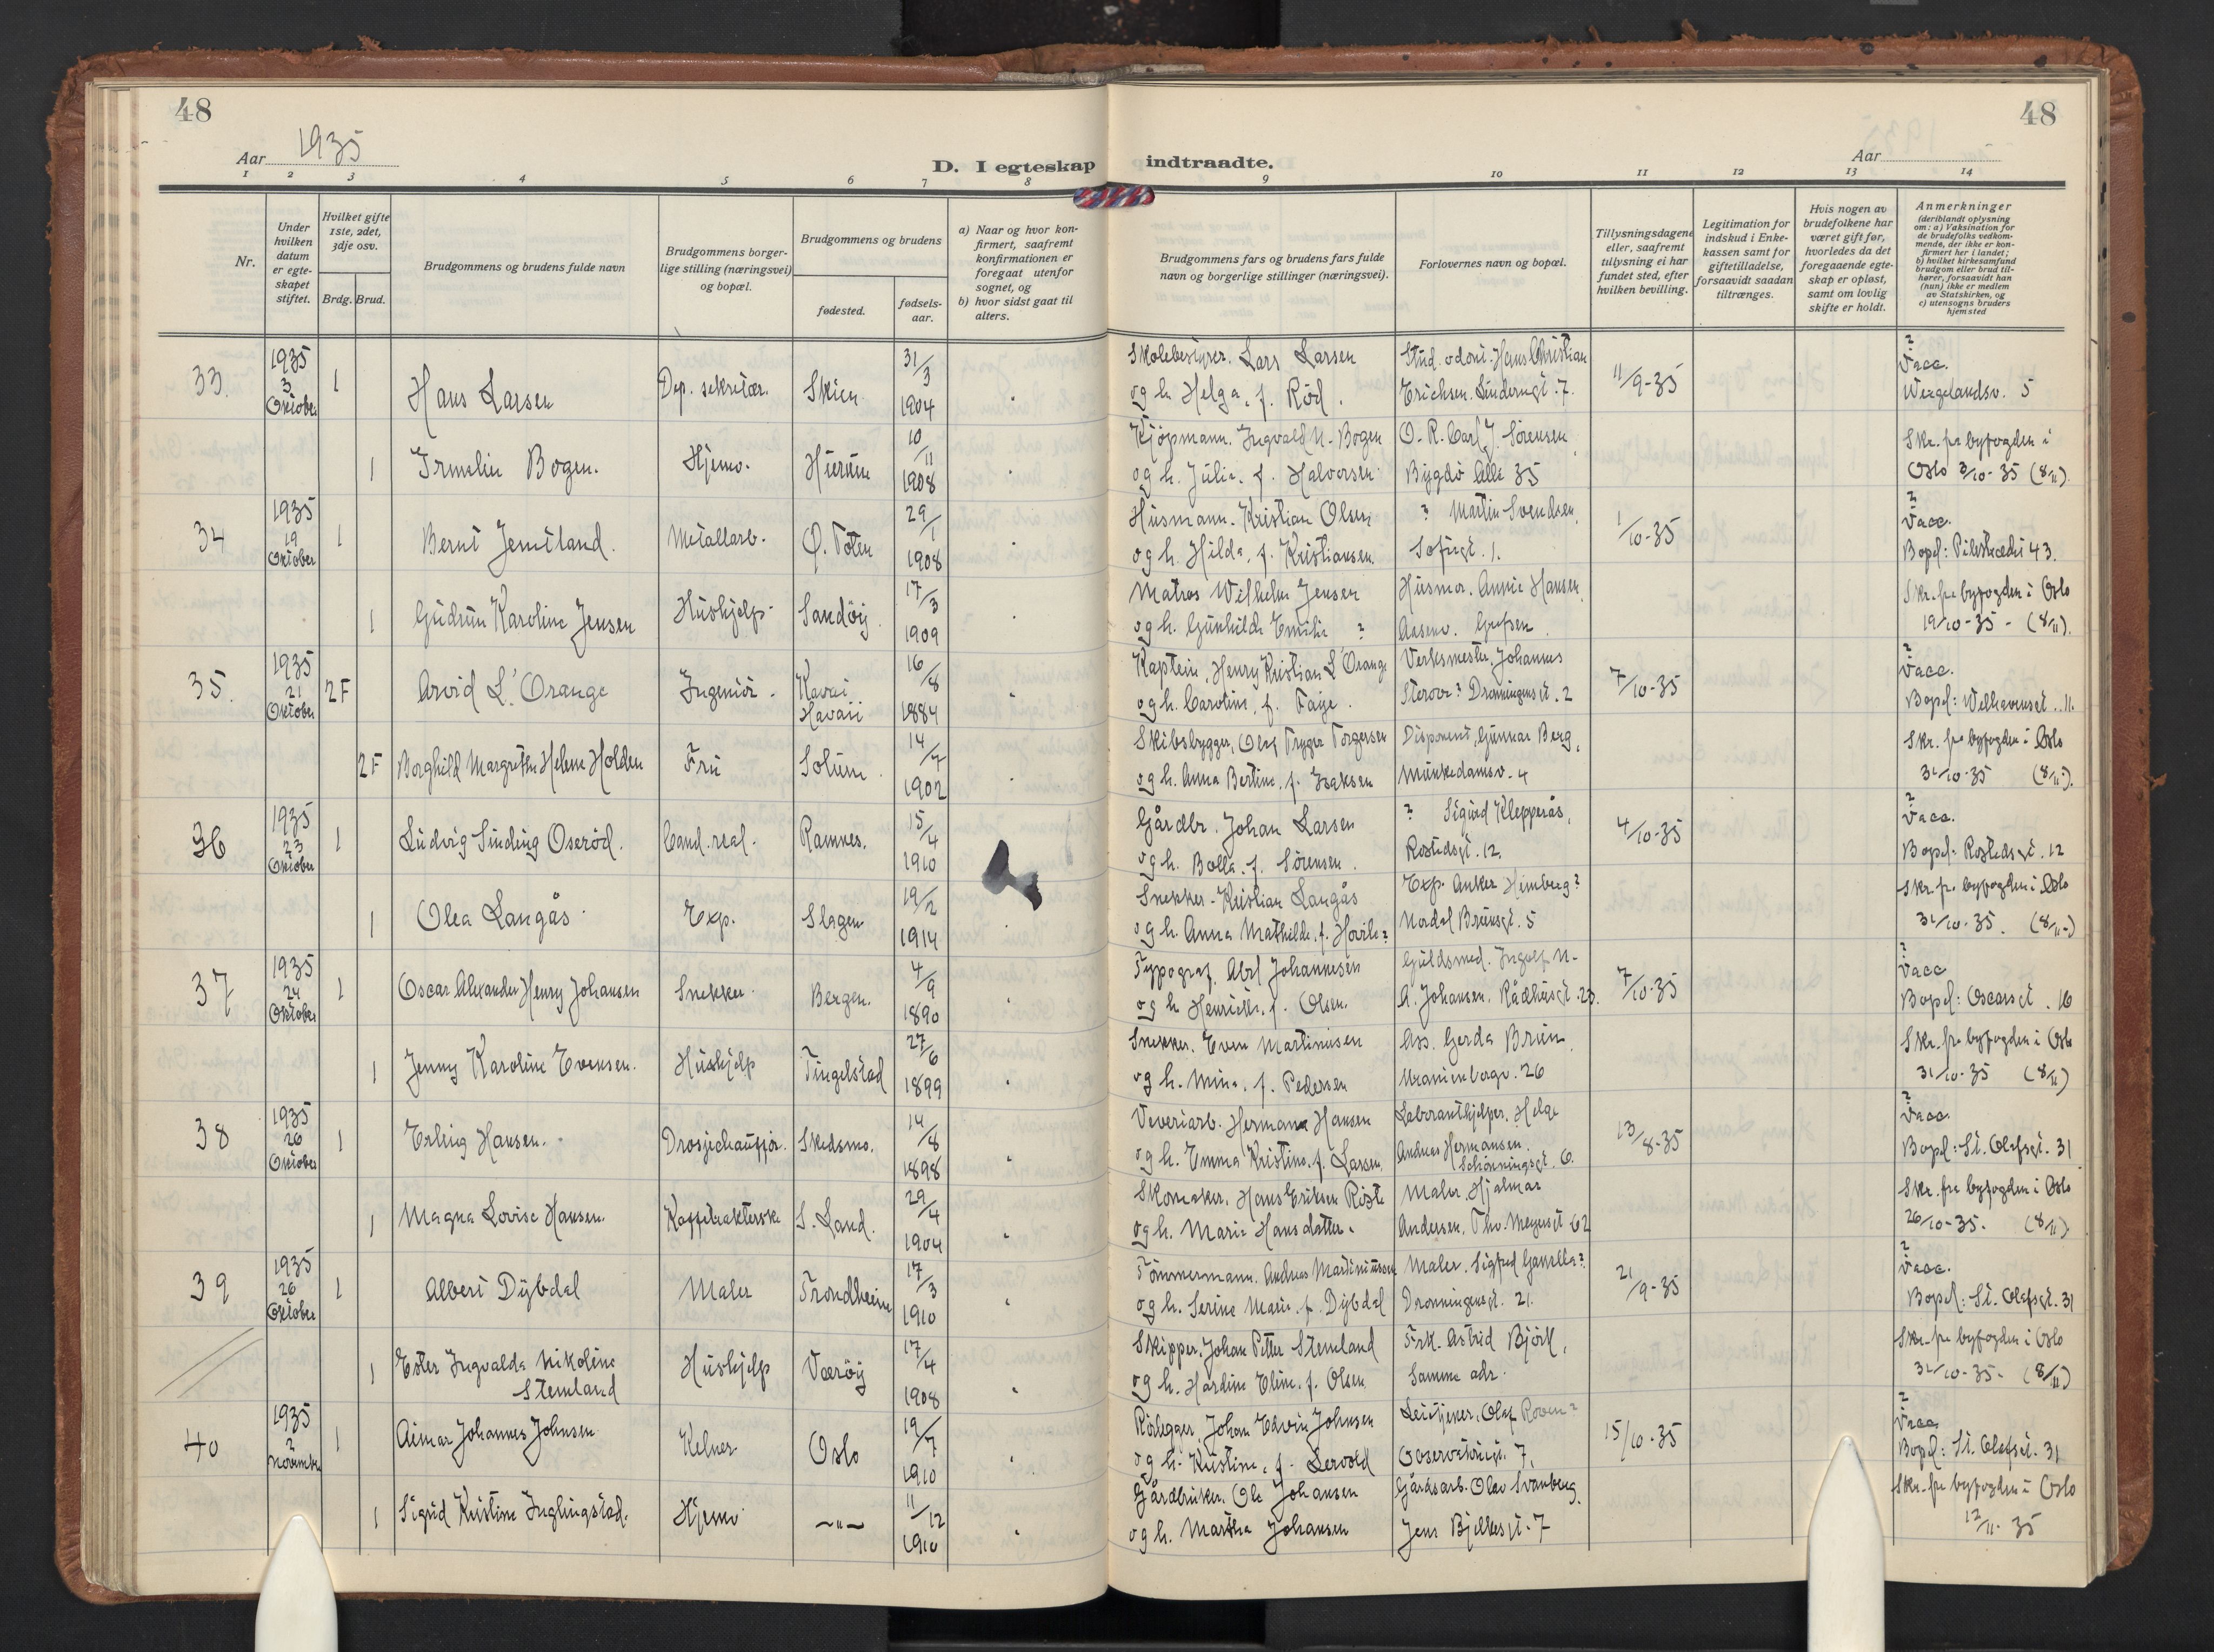 48
48
Aar 1935
D. I egteskap indtraadte.
Aar
1 2 3 4 5 6 7 8 9 10 11 12 13 14
Nr.
Under hvilken datum er egteskapet stiftet.
Hvilket gifte 1ste, 2det, 3dje osv.
Brdg. Brud.
Brudgommens og brudens fulde navn
Brudgommens borgerlige stilling (næringsvei) og bopæl.
Brudgommens og brudens
fødested.
fødselsaar.
a) Naar og hvor konfirmert, saafremt konfirmationen er foregaat utenfor sognet, og
b) hvor sidst gaat til alters.
Brudgommens fars og brudens fars fulde navn og borgerlige stillinger (næringsvei).
Forlovernes navn og bopæl.
Tillysningsdagene eller, saafremt tillysning ei har fundet sted, efter hvilken bevilling.
Legitimation for indskud i Enkekassen samt for giftetilladelse, forsaavidt saadan tiltrænges.
Hvis nogen av brudefolkene har været gift før, hvorledes da det foregaaende egteskap er opløst, samt om lovlig skifte er holdt.
Anmerkninger (deriblandt oplysning om: a) Vaksination for de brudefolks vedkommende, der ikke er konfirmert her i landet; b) hvilket kirkesamfund brudgom eller brud tilhører, forsaavidt han (hun) ikke er medlem av Statskirken, og c) utensogns bruders hjemsted
33. 1935 3 Oktober 1 Hans Larsen Dep. sekretær. Skien 31/3 1904
Skolebestyrer. Lars Larsen
og h. Helga, f. Röd.
Stud. odont. Hans Christian
Erichsen. 7.
11/9-35
? Vacc.
Wergelandsv. 5
1 Irmelin Bogen. Hjemv. Hurum 10/11 1908
Kjöpmann. Ingvald N. Bogen
og h. Julie, f. Halvorsen
O. R. Carl J. Sörensen
Bygdö Alle 35
Skr. fra byfogden i
Oslo 3/10-35 (8/11).
34 1935 19 Oktober 1 Bernt Jemtland. Metallarb. Ø. Toten 29/1 1908
Husmann. Kristian Olsen
og h. Hilda, f. Kristiansen.
? Martin Svendsen.
Sofiegt. 1.
1/10-35
? Vacc.
Bopel: Pilestredet 43.
1 Gudrun Karoline Jensen Hushjelp. Sandöy. 17/3 1909
Matros Wilhelm Jensen
og h. Gunhilde Emilie ?
Husmor. Annie Hansen.
Aasenv. Grefsen.
Skr. fra byfogden i Oslo
19/10-35 - (8/11).
35. 1935 21 Oktober 2F Arvid L'Orange Ingeniör. Kavai Havaii 16/8 1884
Kaptein, Henry Kristian L'Orange
og h. Caroline, f. Faije.
Verksmester. Johannes
? Dronningensgt. 2
7/10-35
? Vacc.
Bopel: Welhavensgt. 11.
2F Borghild Margrethe Helene Holden Fru Solum. 14/7 1902
Skibsbygger, Olaf Trygve Torgersen
og h. Anna Bertine, f. Isaksen
Disponent, Gunnar Berg,
Munkedamsv. 4
Skr. fra byfogden i Oslo
31/10-35 (8/11).
36 1935 23 Oktober 1 Ludvig Sinding Oseröd. Cand. real. Ramnes. 15/4 1910
Gårdbr. Johan Larsen
og h. Bolla, f. Sörensen.
? Sigurd Klepperås,
Rostedsgt. 12.
4/10-35
? Vacc.
Bopel. Rostedsgt. 12
1 Olea Langås. Exp. Slagen 19/2 1914
Snekker. Kristian Langås
og h. Anna Mathilde, f. Hovile?
Exp. Anker Himberg?
Nordal Brunsgt. 5
Skr. fra byfogden i Oslo
31/10-35. (8/11-)
37 1935 24 Oktober 1 Oscar Alexander Henry Johansen Snekker. Bergen. 4/9 1890
Typograf. Abel Johannesen
og h. Henrikke, f. Olsen.
Guldsmed. Ingolf N-
A. Johansen. Rådhusgt. 23.
7/10-35
? Vacc
Bopel: Oscarsgt. 16
1 Jenny Karoline Evensen. Hushjelp Tingelstad 27/6 1899
Snekker. Even Martinusen
og h. Mina, f. Pedersen
Ass. Gerda Bruun.
Uranienborgv. 26
Skr. fra byfogden i Oslo
31/10-35 (8/11)
38 1935 26 Oktober 1 Erling Hansen. Drosjechaufför. Skedsmo. 14/8 1898
Veveriarb. Hermann Hansen
og h. Emma Kristine, f. Larsen.
Laboranthjelper. Helge
Andreas Hermansen.
Schönningsgt. 6.
13/8-35
? Vacc.
Bopel: St. Olafsgt. 31
1 Magna Lovise Hansen. Kaffetrakterske S. Land. 29/4 1904
Skomaker. Hans Eriksen Röste
og h. Marie Hansdatter.
Maler. Hjalmar
Andersen. Thv. Meyersgt 62
Skr. fra byfogden i Oslo
26/10-35. (8/11)
39 1935 26 Oktober 1 Albert Dybdal Maler Trondheim 17/3 1910
Tömmermann. Andreas Martiniussen
og h. Serine Marie, f. Dybdal
Maler. Sigfred
Dronningensgt. 21.
21/9-35
? Vacc.
Bopel: St. Olafsgt. 31
1 Ester Ingvalda Nikoline Stemland Hushjelp Væröy 17/4 1908
Skipper, Johan Petter Stemland
og h. Hardine Eline, f. Olsen
Frk. Astrid Björk,
Samme adr.
Skr. fra byfogden i Oslo
31/10-35- (8/11)
40 1935 2 November 1 Aimar Johannes Johnsen Kelner Oslo 19/7 1910
Rörlegger, Johan Edvin Johnsen
og h. Kristine, f. Lervold
Olaf Roven?
Observatoriegt. 7.
15/10-35
? Vacc.
Bopel: St. Olafsgt. 31
1 Sigrid Kristine Inglingstad. Hjemv -"- 11/12 1910
Gårdbruker. Ole Johansen
og h. Martha Johansen
Gårdsarb. Olav Svanberg.
Jens Bjelkesgt. 7
Skr. fra byfogden i Oslo
12/11-35